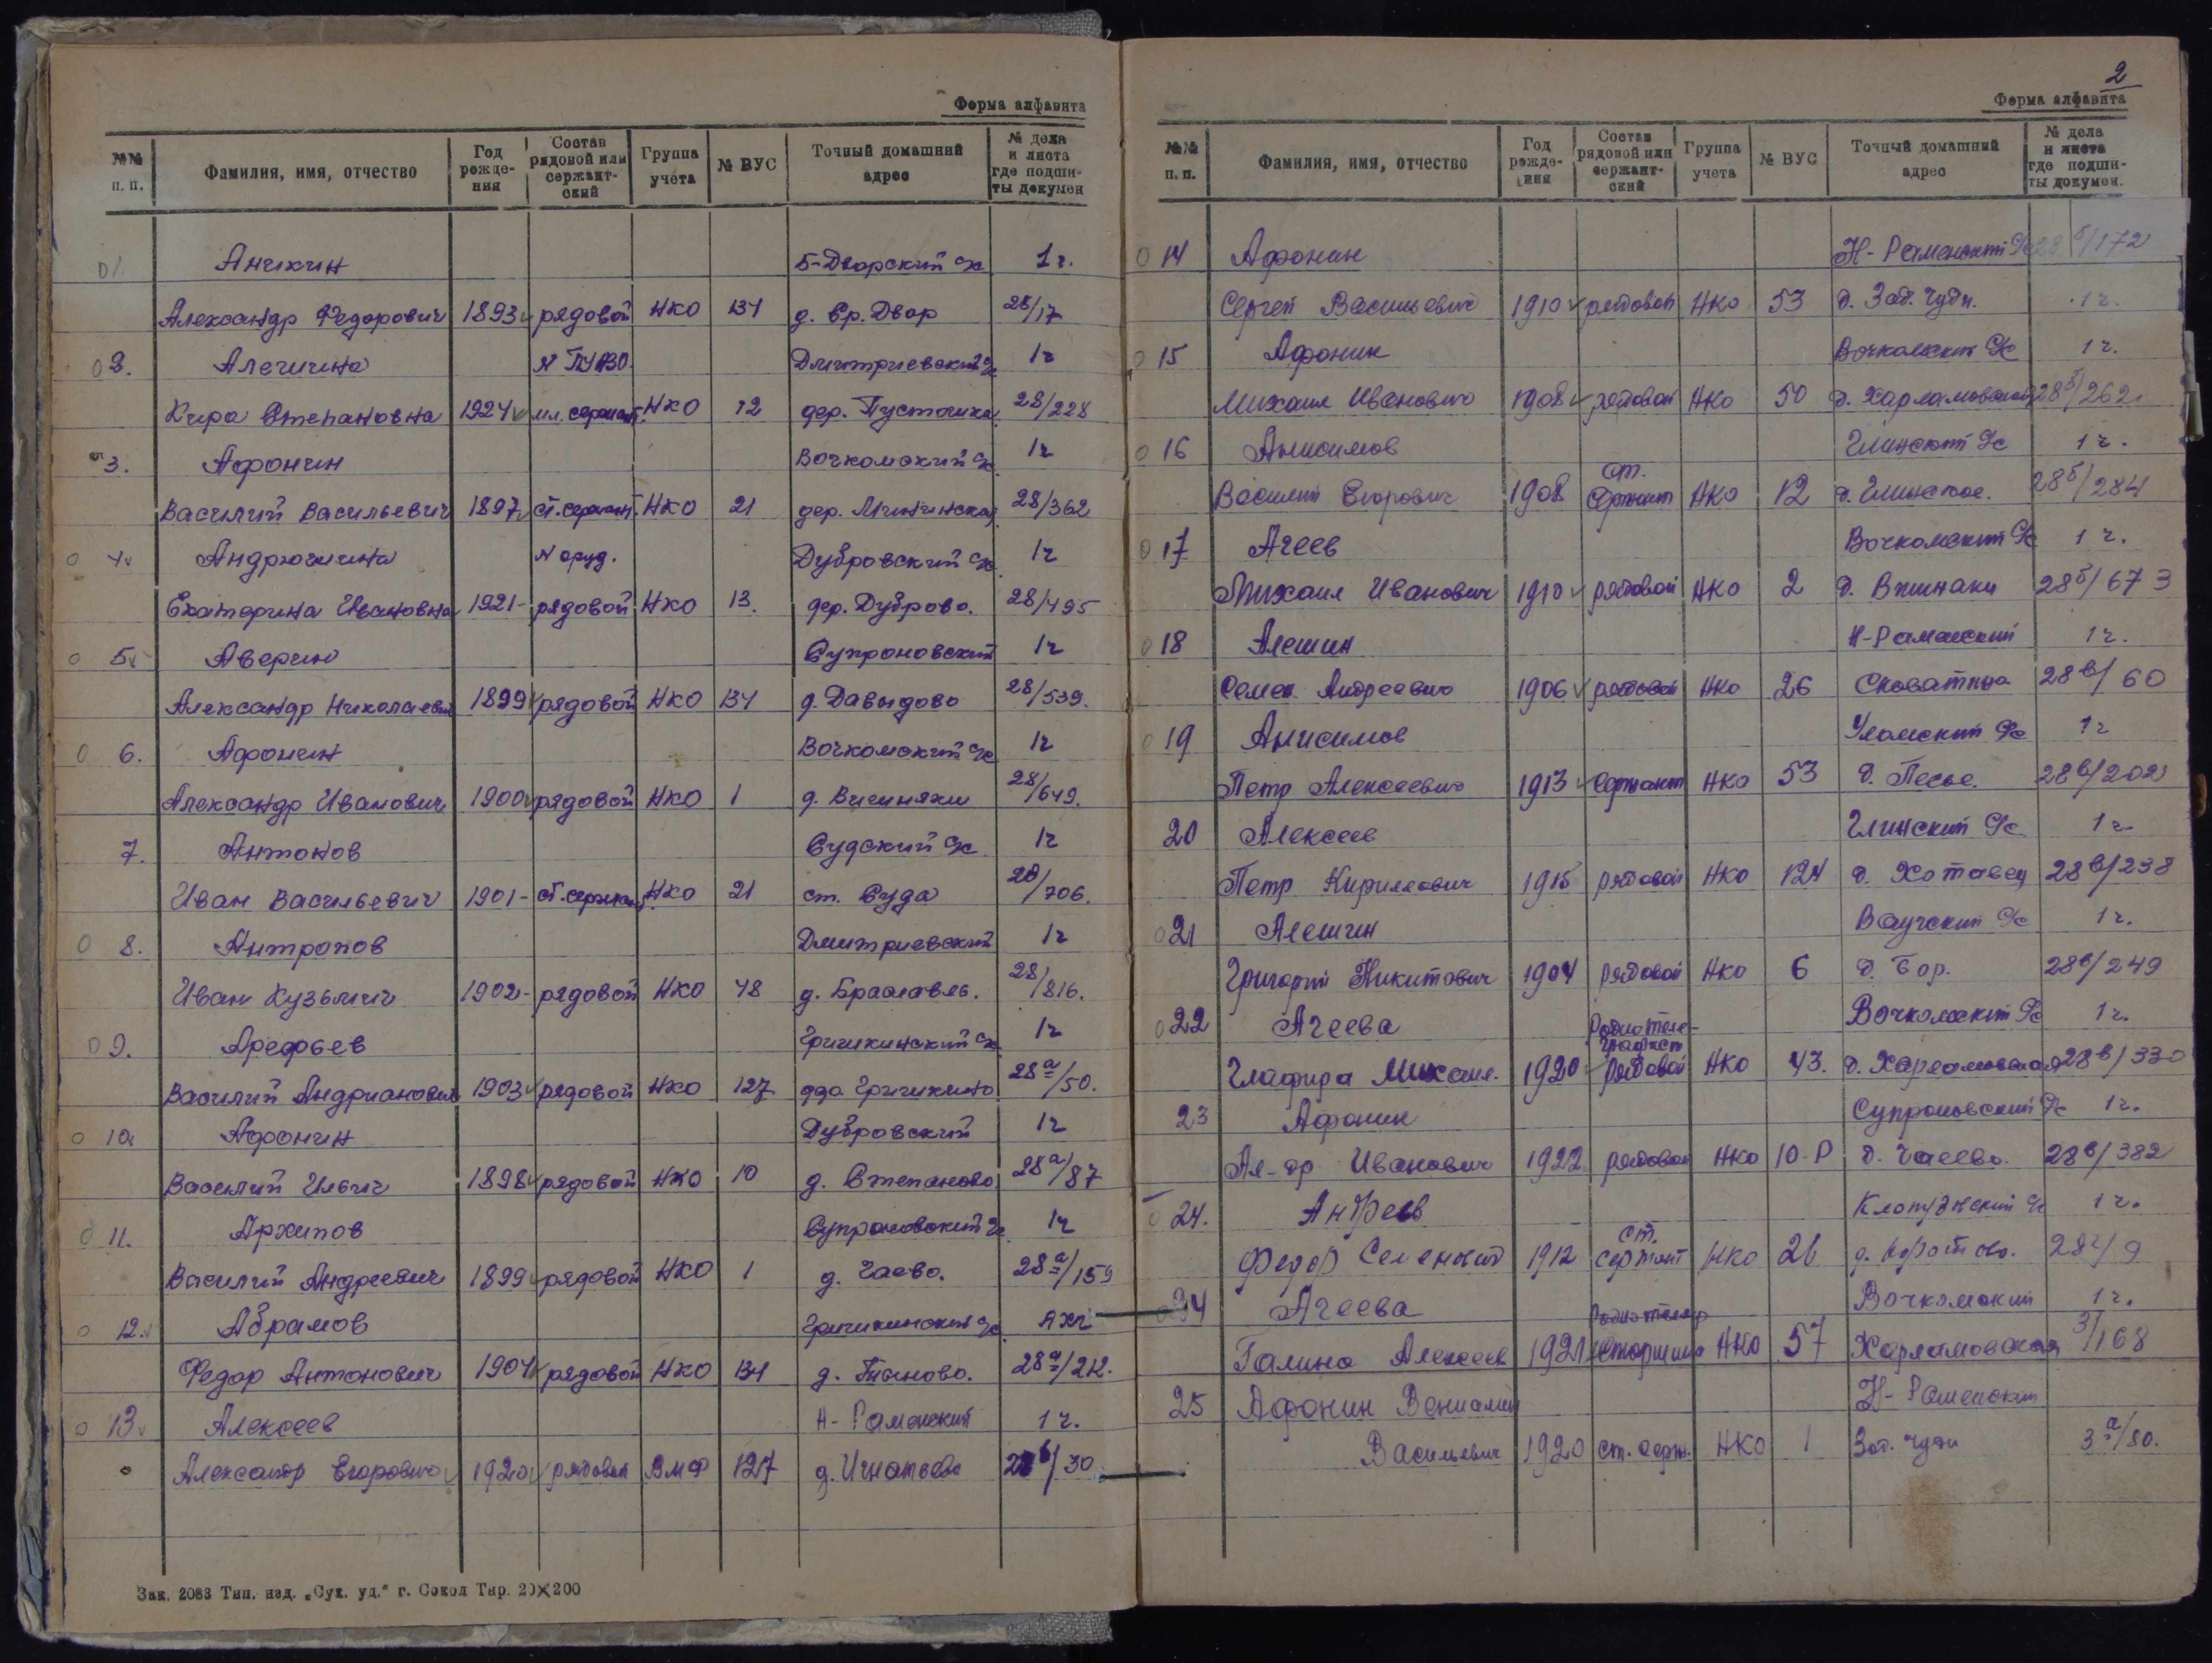 Форма алфавита
№№ п. п. Фамилия, имя, отчество Год рождения Состав рядовой или сержантский Группа учета № ВУС Точный домашний адрес № дела и листа где подшиты докумен
01. Аникин Б-Дворский с/с 1г.
Александр Федорович 1893 рядовой НКО 134 д. Ср. Двор 28/17
02. Алешина Дмитриевский с/с 1г
Кира Степановна 1924 мл. сержант. НКО 12 дер. Пустошка 28/228
3. Афонин Вочкомский с/с 1г
Василий Васильевич 1897 ст. сержант. НКО 21 дер. Мининская 28/362
0 4. Андрюшина Дубровский с/с 1г
Екатерина Ивановна 1921- рядовой НКО 13. дер. Дуброво. 28/495
0 5. Аверин Супроновский 1г
Александр Николаевич 1899 рядовой НКО 134 д. Давыдово 28/539.
0 6. Афонин Вочкомский с/с 1г
Александр Иванович 1900 рядовой НКО 1 д. Вишняки 28/649.
7. Антонов Судский с/с 1г
Иван Васильевич 1901- ст. сержант НКО 21 ст. Суда 28/706.
0 8. Антропов Дмитриевский 1г
Иван Кузьмич 1902- рядовой НКО 48 д. Браславль. 28/816.
0 9. Арефьев Гришкинский с/с 1г
Василий Андрианович 1903 рядовой НКО 127 Гришкино 28а/50.
0 10. Афонин Дубровский 1г
Василий Ильич 1898 рядовой НКО 10 д. Степаново 28а/87
0 11. Архипов Супроновский с/с 1г
Василий Андреевич 1899 рядовой НКО 1 д. Чаево. 28а/159
0 12. Абрамов Гришкинский с/с
Федор Антонович 1904 рядовой НКО 134 28а/212.
0 13 Алексеев Н-Раменский 1г.
Александр Егорович 1920 рядовой ВМФ 127 д. Игнатьево /30
Зак. 2083 Тип. изд. „Сух. уд.“ г. Сокол Тир. 20×200
2
Форма алфавита
№№ п. п. Фамилия, имя, отчество Год рождения Состав рядовой или сержантский Группа учета № ВУС Точный домашний адрес № дела и листа где подшиты докумен.
0 14 Афонин Н-Раменский с/с 28б/172
Сергей Васильевич 1910 рядовой НКО 53 д. Зад. Чуди. 1г.
0 15 Афонин Вочкомский с/с 1г.
Михаил Иванович 1908 рядовой НКО 50 д. Харламовская 28б/262.
0 16 Анисимов Глинский с/с 1г.
Василий Егорович 1908 ст. Сержант НКО 12 д. Глинское. 28б/284
0 17 Агеев Вочкомский с/с 1г.
Михаил Иванович 1910 рядовой НКО 2 д. Вишняки 28б/673
0 18 Алешин Н-Раменский 1г.
Семен Андреевич 1906 рядовой НКО 26 28в/60
0 19 Анисимов Уломский с/с 1г
Петр Алексеевич 1913 Сержант НКО 53 д. Песье. 28в/202
20 Алексеев Глинский с/с 1г.
Петр Кириллович 1915 рядовой НКО 124 д. Хотавец 28в/238
0 21 Алешин Ваучский с/с 1г.
Григорий Никитович 1904 рядовой НКО 6 д. Бор. 28в/249
0 22 Агеева Радиотеле- Вочкомский с/с 1г.
графист
Глафира Михаил. 1920 рядовой НКО 43. д. Харламовская 28в/330
23 Афонин Супроновский с/с 1г.
Ал-др Иванович 1922 рядовой НКО 10-Р д. Чаево. 28в/382
0 24. Андреев 1г.
Федор Семенович 1912 ст. сержант НКО 26 д. Коротово. 28г/9
34 Агеева Вочкомский 1г.
Галина Алексеев 1921 Старшина НКО 57 Харламовская 3/168
25 Афонин Вениамин Н-Раменский
Васильевич 1920 ст. серж. НКО 1 Зад. Чуди 3а/80.